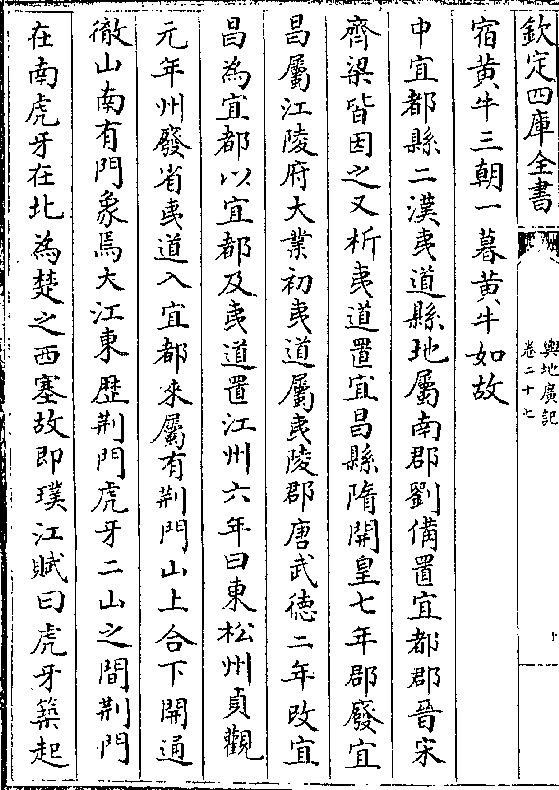 欽定四庫全書
輿地廣記
卷二十七
十
宿黄牛三朝一暮黄牛如故
中宜都縣二漢夷道縣地屬南郡劉備置宜都郡晉宋
齊梁皆因之又析夷道置宜昌縣隋開皇七年郡廢宜
昌屬江陵府大業初夷道屬夷陵郡唐武徳二年改宜
昌為宜都以宜都及夷道置江州六年曰東松州貞觀
元年州廢省夷道入宜都來屬有荆門山上合下開通
徹山南有門象焉大江東歴荆門虎牙二山之間荆門
在南虎牙在北為楚之西塞故即璞江賦曰虎牙築起